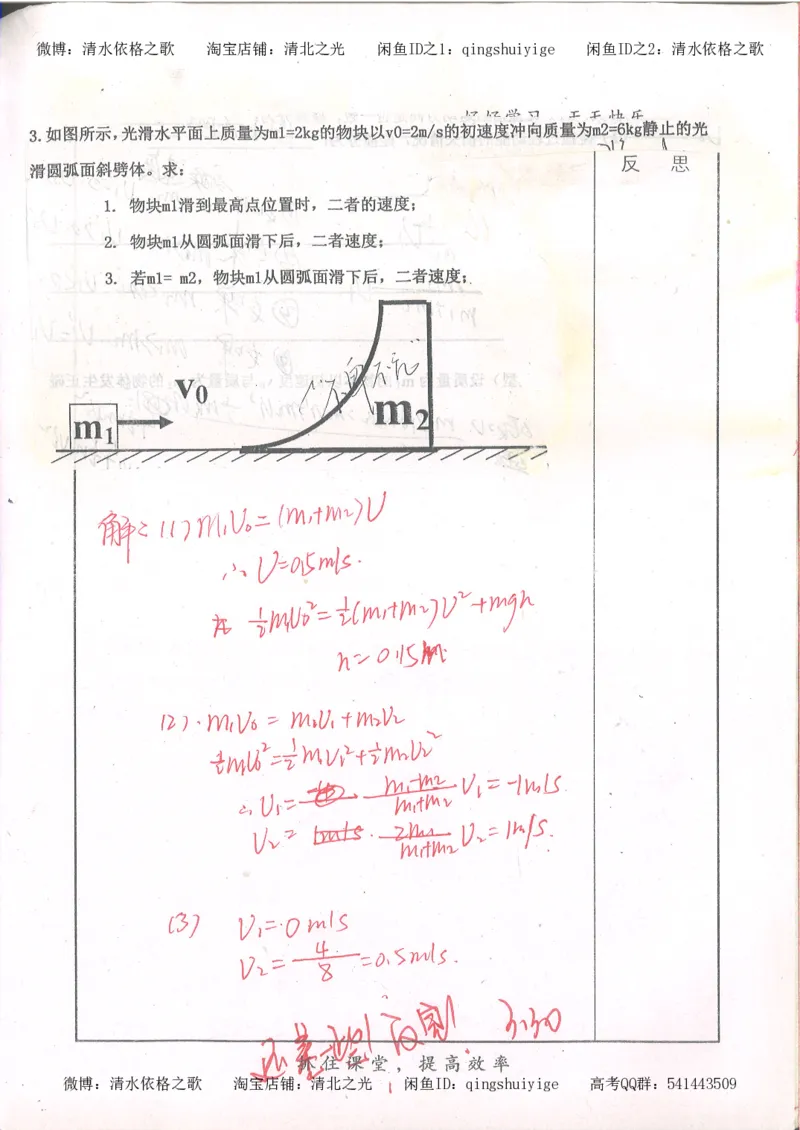 微博：清水依格之歌 淘宝店铺：清北之光 闲鱼ID之1：qingshuiyige 闲鱼ID之2：清水依格之歌
好好学习 天天快乐
3.如图所示，光滑水平面上质量为m1=2kg的物块以v0=2m/s的初速度冲向质量为m2=6kg静止的光
滑圆弧面斜劈体。求：
反 思
1. 物块m1滑到最高点位置时，二者的速度；
2. 物块m1从圆弧面滑下后，二者速度；
3. 若m1= m2，物块m1从圆弧面滑下后，二者速度；
v₀
m₁
m₂
解：(1) m₁v₀=(m₁+m₂)v
∴v=0.5m/s.
½m₁v₀²=½(m₁+m₂)v²+mgh
h=0.15m
(2). m₁v₀ = m₁v₁+m₂v₂
½m₁v₀²=½m₁v₁²+½m₂v₂²
∴v₁= (m₁-m₂)/(m₁+m₂) v₁=-1m/s
v₂= 1m/s. 2m₁/(m₁+m₂) v₂=1m/s.
(3) v₁=0m/s
v₂= 4/8 =0.5m/s.
抓住课堂，提高效率
微博：清水依格之歌 淘宝店铺：清北之光 闲鱼ID：qingshuiyige 高考QQ群：541443509